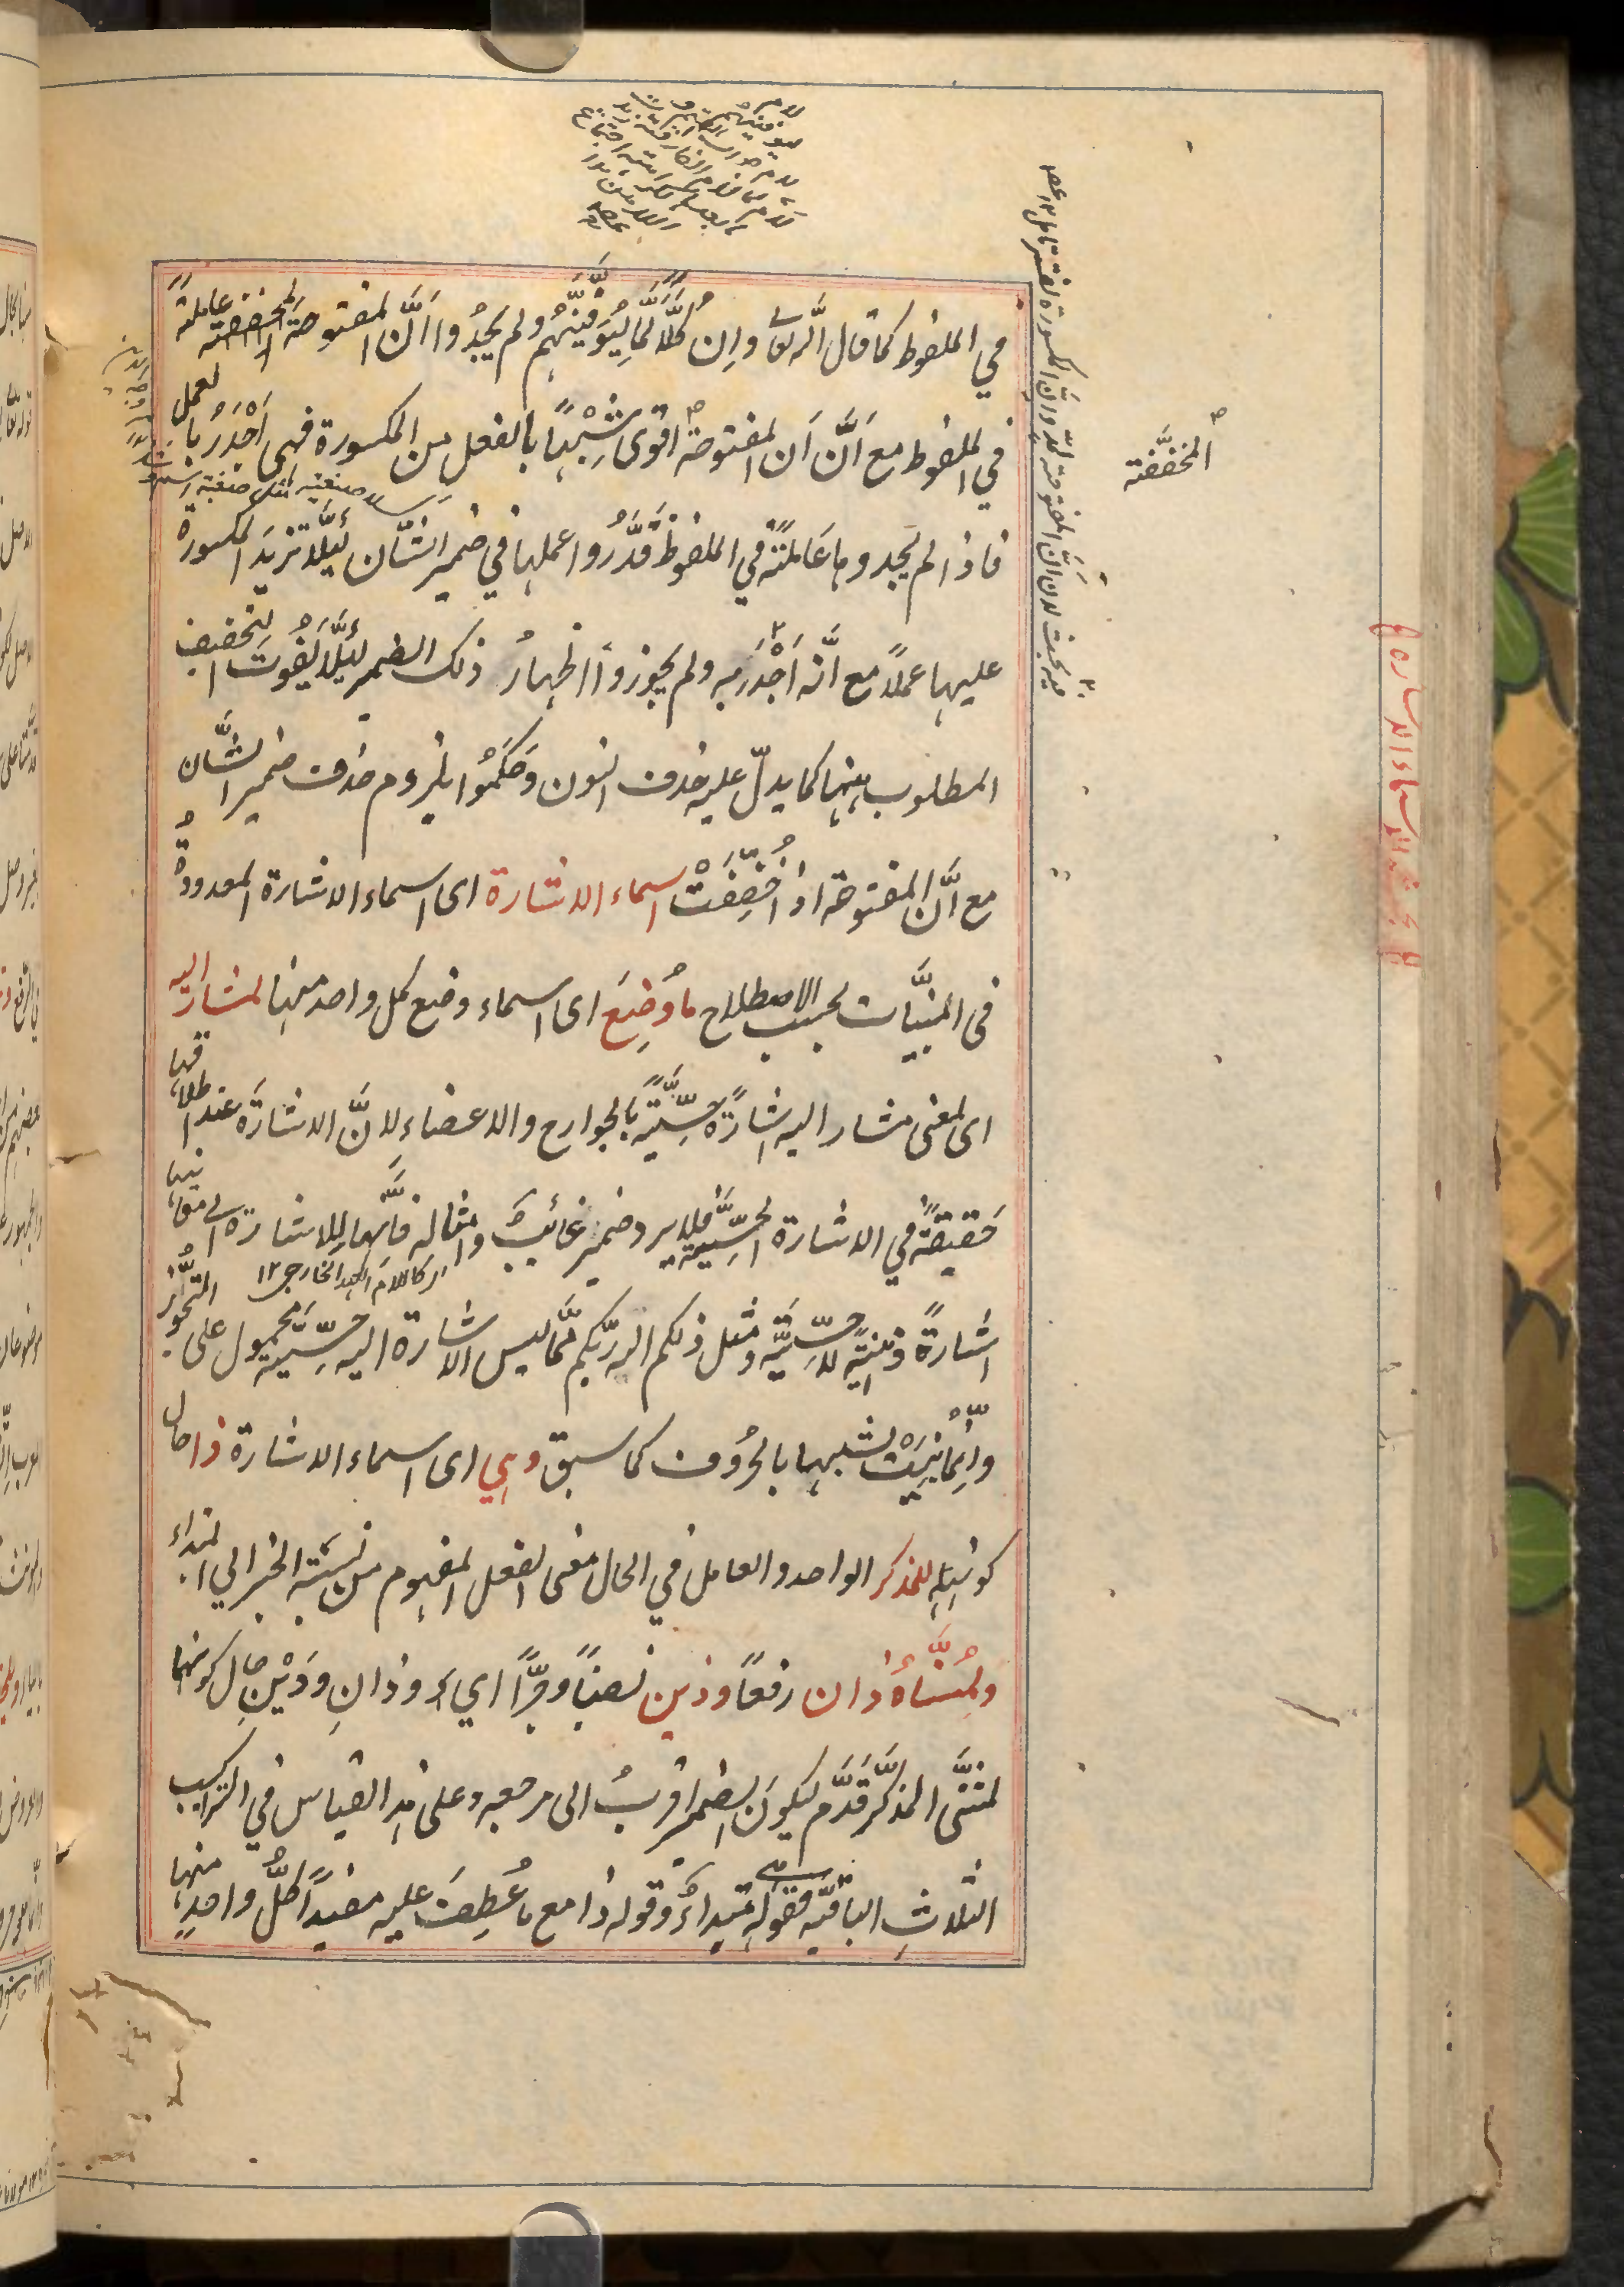 في الملفوظ كما قال الله تعالى وإن كُلًّا لَمَّا لَيُوَفِّيَنَّهُم ولم يجدوا أنَّ المفتوحة المخففة عاملةً
في الملفوظ مع أنَّ أن المفتوحة اقوى شَبَهًا بالفعل من المكسورة فهى أَجْدَرُ بالعمل
فاذا لم يجدوها عَامِلَةً في الملفوظ قَدَّرُوا عملها في ضمير الشَّان لئلَّا تزيد المكسورة
عليها عملاً مع أنَّه أَجْدَرُ به ولم يجوزوا اظهارُ ذلك الضمير لِئَلَّا يَفُوتَ التخفيف
المطلوب بينها كما يدلّ عليه حذف النون وَحَكَمُوا بلزوم حذف ضمير الشَّان
مع أنَّ المفتوحة اذا خُفِّفَتْ اسماء الاشارة اى اسماء الاشارة المعدودةُ
فى المبنيَّات بحسب الاصطلاح ما وُضِعَ اى اسماء وضع كل واحد منها لمشار اليه
اى لمعنى مشار اليه اشارَةً حِسِّيَّةً بالجوارح والاعضاءِ لِانَّ الاشارَةَ عند اطلاقها
حَقيقةٌ في الاشارة الحِسِّيَّة فلا يرد ضمير غائبٍ وامثالِه فإنَّها للاشارة الى معانيها
اشارةً ذهنيّةً لا حِسِّيَّةً ومثل ذلكم الله ربّكم ممَّا ليس الاشارة اليه حِسِّيَّةً محمول على التَّجَوُّزِ
اى كاللام العهد الخارجى ١٢
وإِنَّمَا بُنِيَتْ لشبهها بالحُروف كما سبق وهِي اى اسماء الاشارة ذا حال
كونِه للمذكر الواحد والعامل في الحال معنى الفعل المفهوم من نِسْبَةِ الخبر الي المبتداء
ولِمُثَنَّاهُ ذان رفعًا وذين نصبًا وجرًّا اي وذانِ وذَيْنِ حال كونهما
لمثنَّى المذكَّر قَدَّم ليكونَ الضمير اقربُ الى مرجعه وعلى هذا القياس في التراكيب
الثلاثِ الباقيّه فقوله هى مبتداءٌ وقوله ذا مع ما عُطِفَ عليه مفيدًا كلُّ واحدٍ منها
المخفَّفة
بحث الاسماء الاشارة